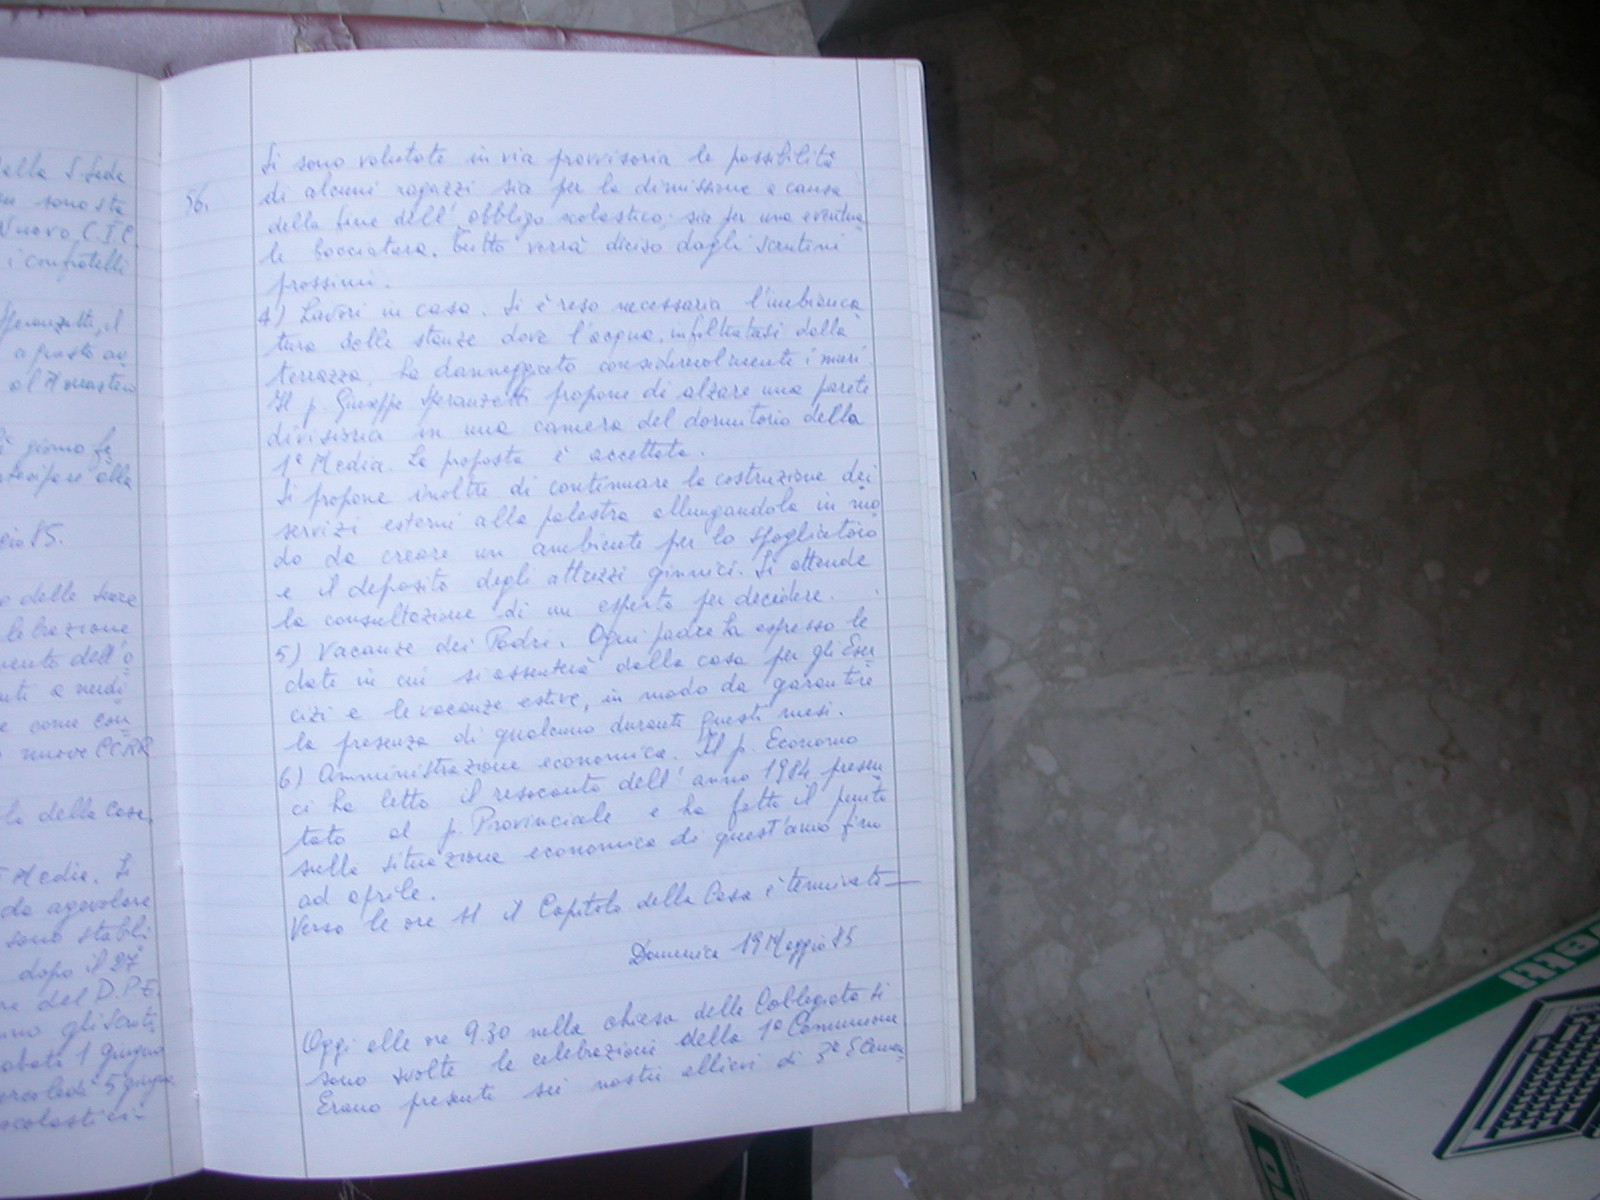 della S. Sede
sono sta
Nuovo C.I.C.
i confratelli
Speranzetti, il
al Monastero
giorno
partecipare alla
delle suore
celebrazione
dell'o
come con
nuove CC.RR.
della casa.
Media. Si
da agevolare
sono stabili
dopo il 27
del D.P.E.
gli scruti
sabato 1 giugno
mercoledì 5 giugno
scolastici-
56.
Si sono valutate in via provvisoria le possibilità
di alcuni ragazzi sia per la dimissione a causa
della fine dell'obbligo scolastico; sia per una eventua
le bocciatura. Tutto verrà deciso dagli scrutini
prossimi.
4) Lavori in casa. Si è reso necessaria l'imbianca
tura delle stanze dove l'acqua, infiltratasi dalla
terrazza, ha danneggiato considerevolmente i muri.
Il p. Giuseppe Speranzetti propone di alzare una parete
divisoria in una camera del dormitorio della
1ª Media. La proposta è accettata.
Si propone inoltre di continuare la costruzione dei
servizi esterni alla palestra allungandola in mo
do da creare un ambiente per lo spogliatoio
e il deposito degli attrezzi ginnici. Si attende
la consultazione di un esperto per decidere.
5) Vacanze dei Padri. Ogni padre ha espresso le
date in cui si assenterà dalla casa per gli Eser
cizi e le vacanze estive, in modo da garantire
la presenza di qualcuno durante questi mesi.
6) Amministrazione economica. Il p. Economo
ci ha letto il resoconto dell'anno 1984 presen
tato al p. Provinciale e ha fatto il punto
sulla situazione economica di quest'anno fino
ad aprile.
Verso le ore 11 il Capitolo della Casa è terminato—
Domenica 19 Maggio 85
Oggi alle ore 9.30 nella chiesa della Collegiata si
sono svolte le celebrazioni della 1ª Comunione
Erano presenti sei nostri allievi di 3ª Elemen